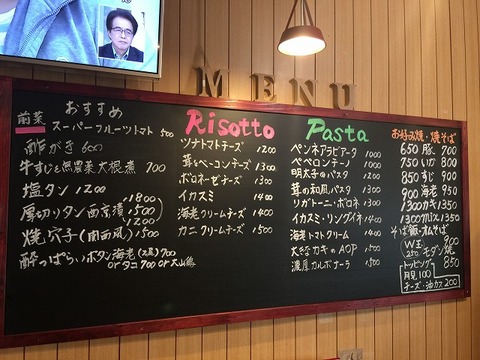 MENU
前菜 おすすめ
スーパーフルーツトマト 500
酢がき 600
牛すじと無農薬大根煮 700
塩タン 1200
厚切りタン西京漬 1800
1500
1200
焼穴子(関西風) 1500
酔っぱらいボタン海老(2尾)700
orタコ700 or
Risotto
ツナトマトチーズ 1200
茸とベーコンチーズ 1300
ボロネーゼチーズ 1300
イカスミ 1400
海老クリームチーズ 1400
カニクリームチーズ 1500
Pasta
ペンネアラビアータ 1000
ペペロンチーノ 1000
明太子のパスタ 1300
茸の和風パスタ 1300
リガトーニ・ボロネ 1300
イカスミ・リングイネ 1400
海老トマトクリーム 1400
大きなカキのAOP 1500
濃厚カルボナーラ 1500
お好み焼・焼そば
650 豚 700
750 いか 800
850 すじ 900
900 海老 950
1300 カキ 1350
1300 ミックス 1350
そば飯・オムそば 900
W玉 250 モダン焼 850
トッピング
月見 100
チーズ・油カス 200